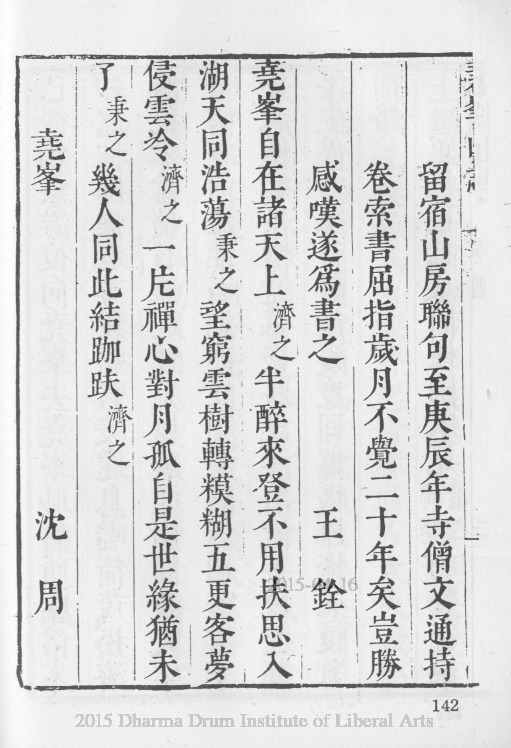 堯峯山志
留宿山房聯句至庚辰年寺僧文通持
卷索書屈指歲月不覺二十年矣豈勝
感嘆遂爲書之 王銓
堯峯自在諸天上濟之半醉來登不用扶思入
湖天同浩蕩秉之望窮雲樹轉糢糊五更客夢
侵雲冷濟之一片禪心對月孤自是世緣猶未
了秉之幾人同此結跏趺濟之
堯峯 沈周
2015-04-16
142
2015 Dharma Drum Institute of Liberal Arts